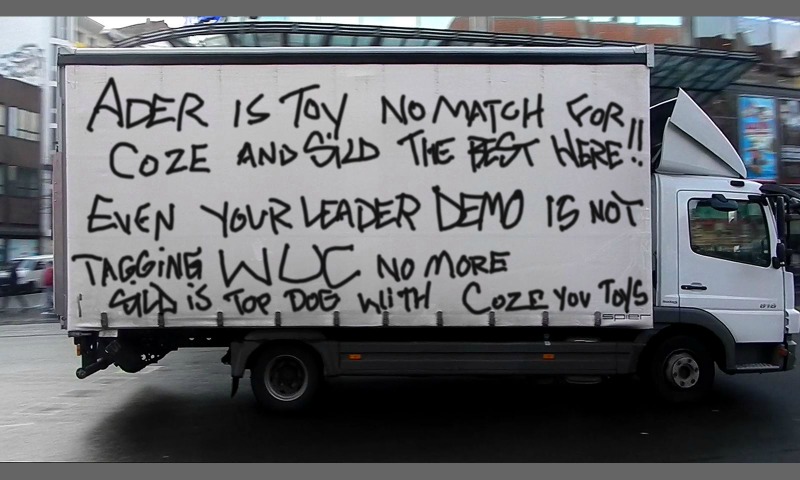 ADER IS TOY NO MATCH FOR
COZE AND SILD THE BEST HERE!!
EVEN YOUR LEADER DEMO IS NOT
TAGGING WUC NO MORE
SILD IS TOP DOG WITH COZE YOU TOYS
spier
818